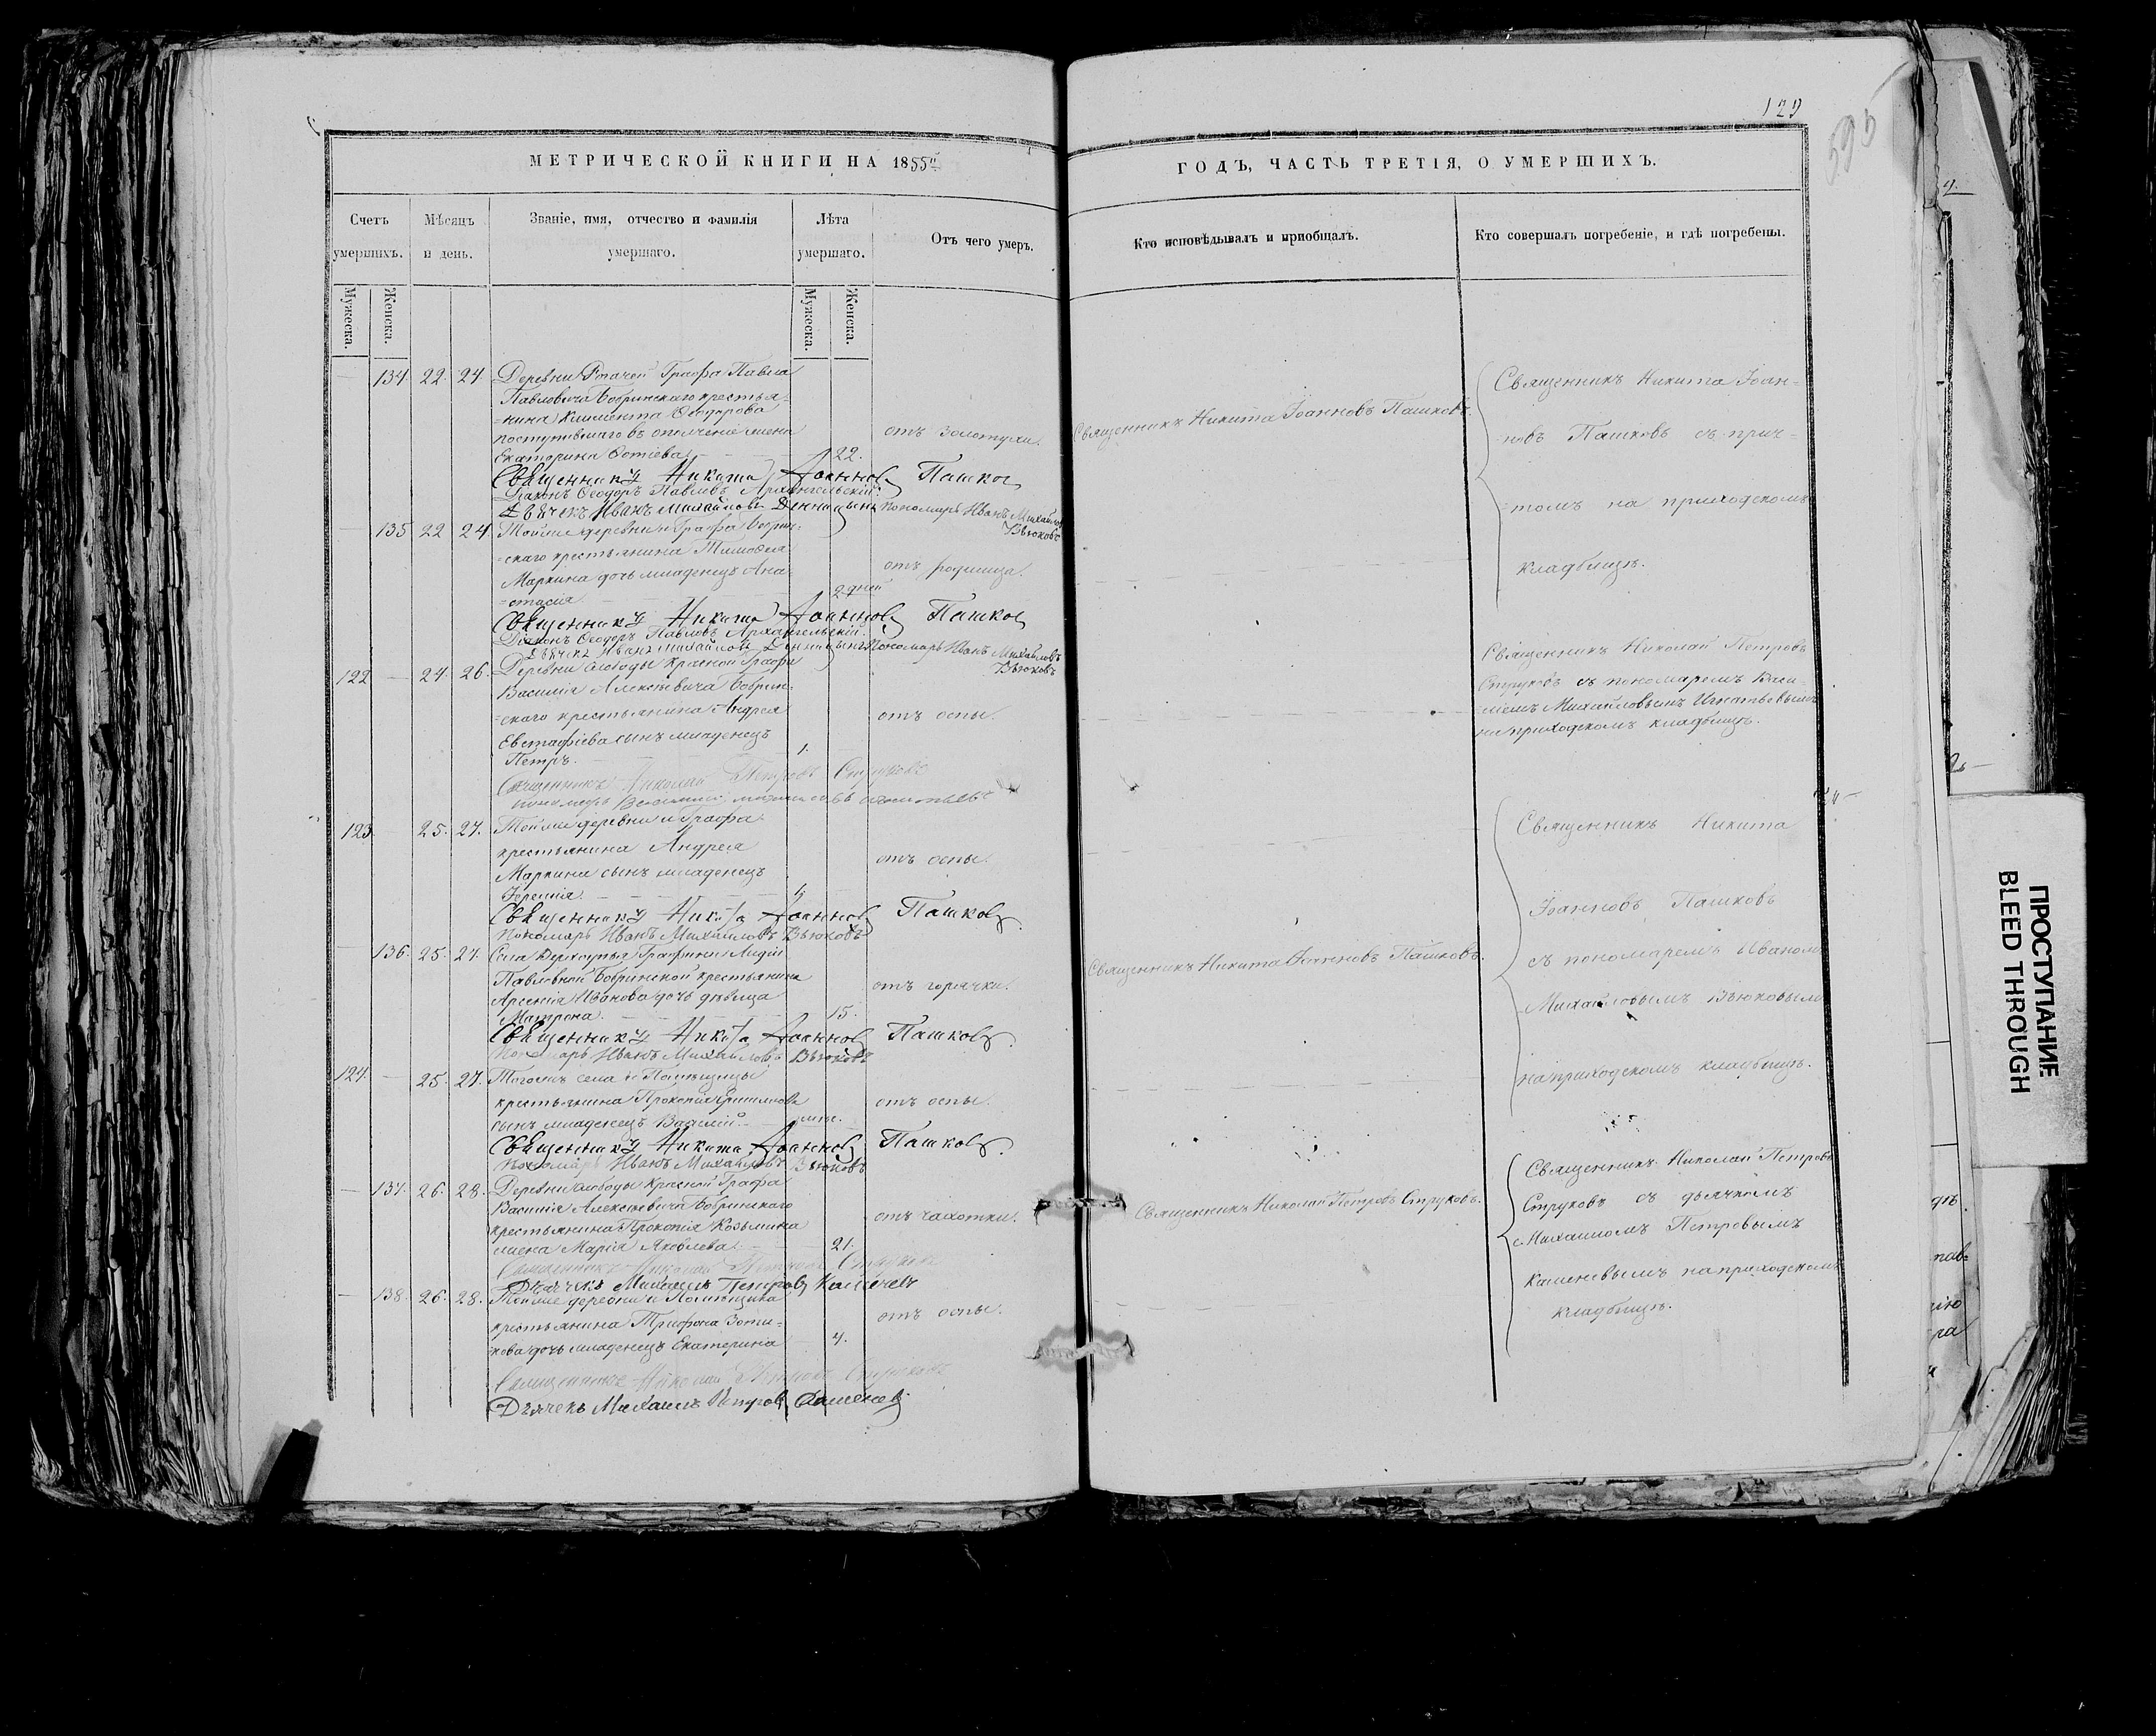 129
595
МЕТРИЧЕСКОЙ КНИГИ НА 1855й
ГОДЪ, ЧАСТЬ ТРЕТІЯ, О УМЕРШИХЪ.
Счетъ умершихъ.
Мѣсяцъ и день.
Званіе, имя, отчество и фамилія умершаго.
Лѣта умершаго.
Отъ чего умеръ.
Кто исповѣдывалъ и пріобщалъ.
Кто совершалъ погребеніе, и гдѣ погребены.
Мужеска.
Женска.
Мужеска.
Женска.
134. 22. 24. Деревни Графа Павла
Павловича Бобринскаго крестья-
=нина Климента Ѳеодорова
поступившаго въ ополченіе жена
Екатерина Фотіева 22.
отъ золотухи.
Священникъ Никита Іоанновъ Пашковъ.
Священникъ Никита Іоан=
=новъ Пашковъ съ прич=
=томъ на приходскомъ
кладбищѣ.
Священникъ Никита Іоанновъ Пашковъ
Діаконъ Ѳеодоръ Павловъ Архангельскій.
Дьячекъ Иванъ Михайловъ Пономарь Иванъ Михайловъ
Вьюковъ
135 22 24. Тойже деревни и Графа Бобрин-
=скаго крестьянина Тимоѳея
Маркина дочь младенецъ Ана-
=стасія 2 дней
отъ родимца.
Священникъ Никита Іоанновъ Пашковъ
Діаконъ Ѳеодоръ Павловъ Архангельскій.
Дьячекъ Иванъ Михайловъ Пономарь Иванъ Михайловъ
Вьюковъ
122 24. 26. Деревни слободы Красной Графа
Василія Алексѣевича Бобрин-
=скаго крестьянина Андрея
Евстафіева сынъ младенецъ
Петръ. 1.
отъ оспы.
Священникъ Николай Петровъ
Струковъ съ пономаремъ Васи-
ліемъ Михайловымъ Игнатьевымъ
на приходскомъ кладбищѣ.
Священникъ Николай Петровъ Струковъ
пономарь Василій Михайловъ Игнатьевъ
123 25. 27. Тойже деревни и Графа
крестьянина Андрея
Маркина сынъ младенецъ
отъ оспы.
Священникъ Никита
Іоанновъ Пашковъ
съ пономаремъ Иваномъ
Михайловымъ Вьюковымъ
на приходскомъ кладбищѣ.
Священникъ Никита Іоанновъ Пашковъ
Пономарь Иванъ Михайловъ Вьюковъ
136. 25. 27. Села Верхоупья Графини Лидіи
Павловной Бобринской крестьянина
Арсенія Иванова дочь дѣвица
Матрона. 15.
отъ горячки.
Священникъ Никита Іоанновъ Пашковъ.
Священникъ Никита Іоанновъ Пашковъ
Пономарь Иванъ Михайловъ Вьюковъ
124. 25. 27. Тогожъ села и Помѣщицы
крестьянина Прокопія
сынъ младенецъ Василій.
отъ оспы.
Священникъ Никита Іоанновъ Пашковъ
Пономарь Иванъ Михайловъ Вьюковъ
137. 26. 28. Деревни слободы Красной Графа
Василія Алексѣевича Бобринскаго
крестьянина Прокопія Козьмина
жена Марія Яковлева. 21.
отъ чахотки.
Священникъ Николай Петровъ Струковъ.
Священникъ Николай Петровъ
Струковъ съ дьячкомъ
Михаиломъ Петровымъ
Каменевымъ на приходскомъ
кладбищѣ.
Священникъ Николай Петровъ Струковъ
Дьячекъ Михаилъ Петровъ Каменевъ
138. 26. 28. Тойже деревни и Помѣщика
крестьянина Трифона Зоти-
кова дочь младенецъ Екатерина 4.
отъ оспы.
Священникъ Николай Петровъ Струковъ
Дьячекъ Михаилъ Петровъ Каменевъ
ПРОСТУПАНИЕ
BLEED THROUGH